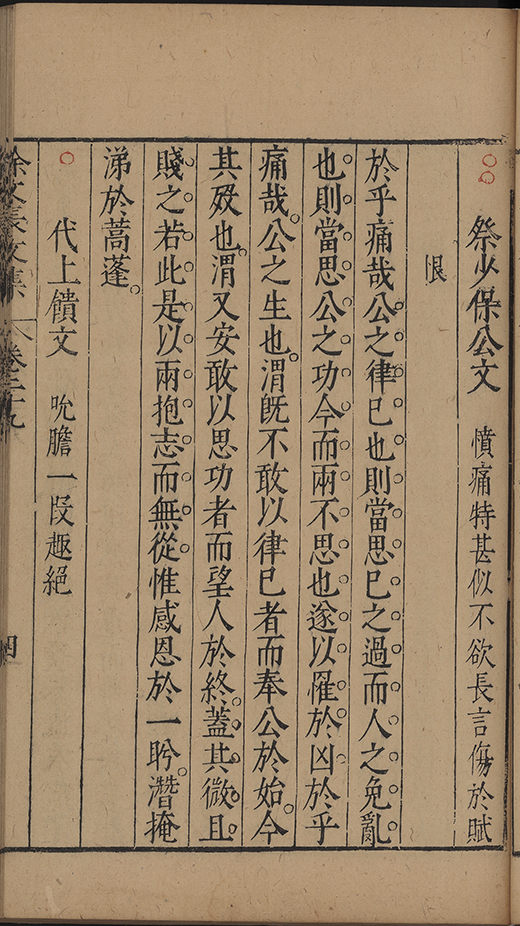 祭少保公文 憤痛特甚似不欲長言傷於賦
恨
於乎痛哉公之律已也則當思已之過而人之免亂
也則當思公之功今而兩不思也遂以罹於凶於乎
痛哉公之生也渭旣不敢以律已者而奉公於始今
其殁也渭又安敢以思功者而望人於終蓋其微且
賤之若此是以兩抱志而無從惟感恩於一盻潛掩
涕於蒿蓬
代上饋文 吮膽一段趣絕
徐文長文集 卷二十九 四